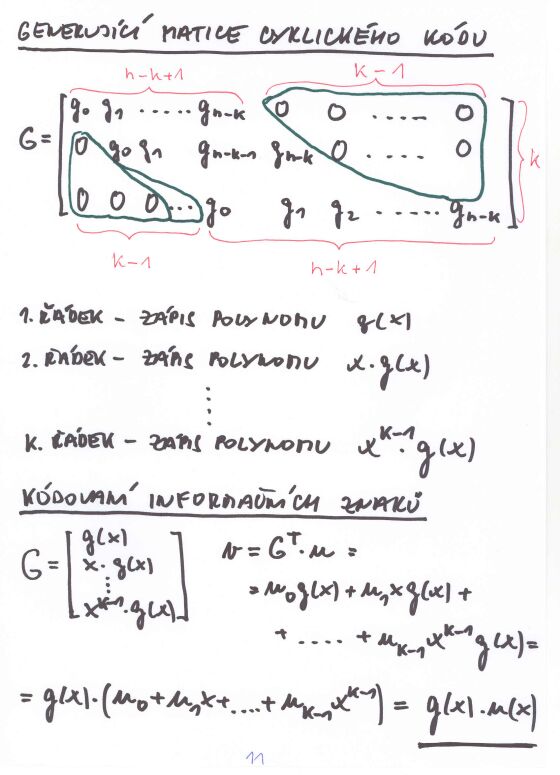 GENERUJÍCÍ MATICE CYKLICKÉHO KÓDU
n-k+1 k-1
g₀ g₁ ..... gₙ₋ₖ 0 0 ..... 0
G = 0 g₀ g₁ gₙ₋ₖ₋₁ gₙ₋ₖ 0 .... 0 k
0 0 0 ... g₀ g₁ g₂ ...... gₙ₋ₖ
k-1 n-k+1
1. ŘÁDEK - ZÁPIS POLYNOMU g(x)
2. ŘÁDEK - ZÁPIS POLYNOMU x·g(x)
K. ŘÁDEK - ZÁPIS POLYNOMU x^{k-1}·g(x)
KÓDOVANÍ INFORMAČNÍCH ZNAKŮ
G = [ g(x)
x·g(x)
x^{k-1}·g(x) ]
v = G^T·u =
= u₀g(x) + u₁xg(x) +
+ .... + u_{k-1}x^{k-1}g(x) =
= g(x)·(u₀+u₁x+....+u_{k-1}x^{k-1}) = g(x)·u(x)
11